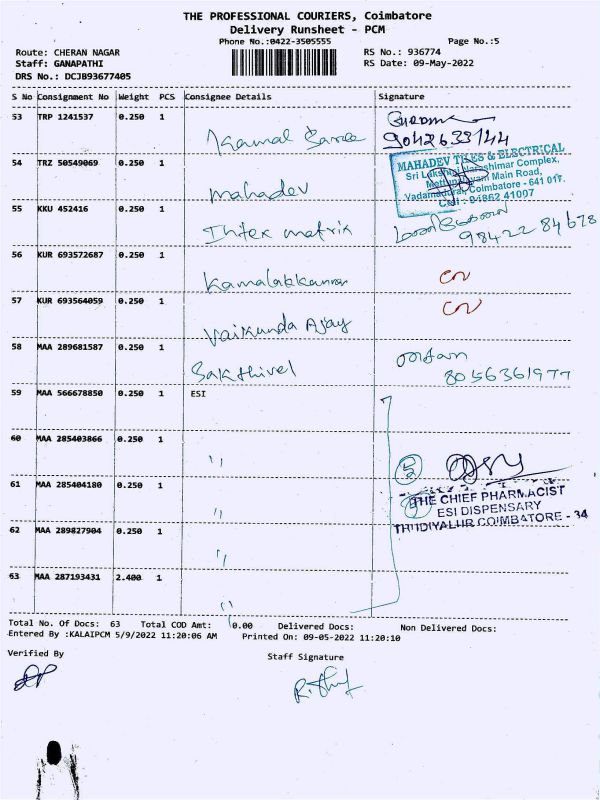 THE PROFESSIONAL COURIERS, Coimbatore
Delivery Runsheet - PCM
Phone No.:0422-3505555
Page No.:5
Route: CHERAN NAGAR
RS No.: 936774
Staff: GANAPATHI
RS Date: 09-May-2022
DRS No.: DCJB93677405
S No Consignment No Weight PCS Consignee Details Signature
53 TRP 1241537 0.250 1
Kamal
9042633144
54 TRZ 50549069 0.250 1
mahadev
MAHADEV TILES & ELECTRICAL
Sri Lakshmi Narashimar Complex,
Main Road,
Coimbatore - 641 017.
Cell : 94862 41007
55 KKU 452416 0.250 1
Intex matrix
98422 84678
56 KUR 693572687 0.250 1
Kamalakkannan
57 KUR 693564059 0.250 1
Vaikunda Ajay
58 MAA 289681587 0.250 1
Sakthivel
8056361977
59 MAA 566678850 0.250 1 ESI
60 MAA 285403866 0.250 1
"
61 MAA 285404180 0.250 1
"
THE CHIEF PHARMACIST
ESI DISPENSARY
THUDIYALUR COIMBATORE - 34
62 MAA 289827904 0.250 1
"
63 MAA 287193431 2.400 1
"
Total No. Of Docs: 63 Total COD Amt: 0.00 Delivered Docs: Non Delivered Docs:
Entered By :KALAIPCM 5/9/2022 11:20:06 AM Printed On: 09-05-2022 11:20:10
Verified By
Staff Signature